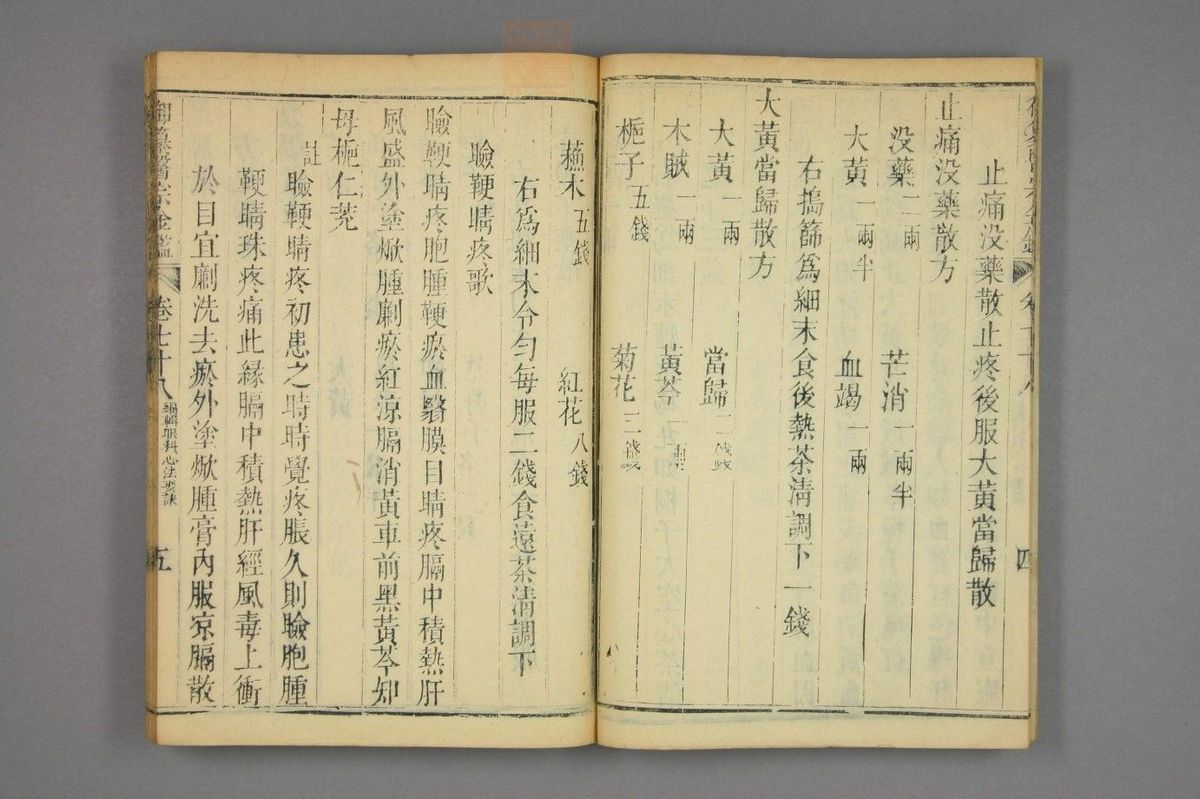 止痛没藥散止疼後服大黃當歸散
止痛没藥散方
没藥二兩　芒消一兩半
大黃一兩半　血竭一兩
右搗篩爲細末食後熱茶清調下一錢
大黃當歸散方
大黃一兩　當歸二錢
木賊一兩　黃芩一兩
梔子五錢　菊花三錢
四
蘇木五錢　紅花八錢
右爲細末令勻每服二錢食遠茶清調下
瞼鞕睛疼歌
瞼鞕睛疼胞腫鞕瘀血翳膜目睛疼膈中積熱肝
風盛外塗焮腫劆瘀紅涼膈消黃車前黑黃芩知
母梔仁茺
註
瞼鞕睛疼初患之時時覺疼脹久則瞼胞腫
鞕睛珠疼痛此緣膈中積熱肝經風毒上衝
於目宜劆洗去瘀外塗焮腫膏內服凉膈散
御纂醫宗金鑑　卷七十八　編輯眼科心法要訣　五